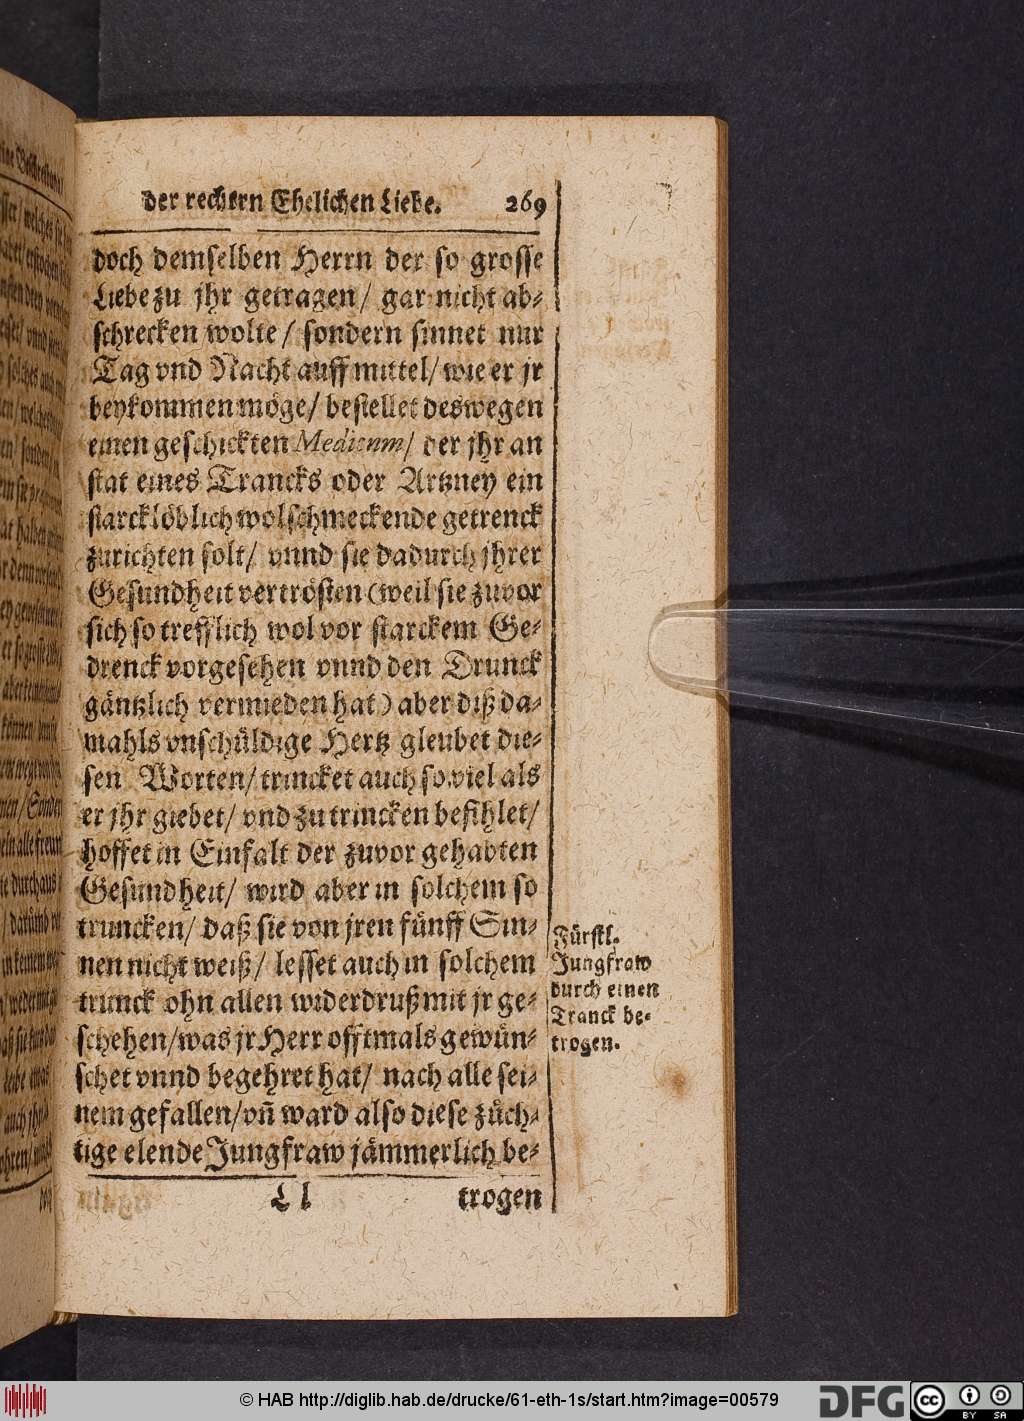 der rechten Ehelichen Liebe. 269
doch demselben Herrn der so grosse
Liebe zu jhr getragen/ gar nicht ab-
schrecken wolte/ sondern sinnet nur
Tag vnd Nacht auff mittel/ wie er jr
beykommen möge/ bestellet deswegen
einen geschickten Medicum/ der jhr an
stat eines Trancks oder Artzney ein
starck löblich wolschmeckende getrenck
zurichten solt/ vnnd sie dadurch jhrer
Gesundheit vertrösten (weil sie zuvor
sich so trefflich wol vor starckem Ge-
drenck vorgesehen vnnd den Drunck
gäntzlich vermieden hat) aber diß da-
mahls vnschüldige Hertz gleubet die-
sen Worten/ trincket auch so viel als
er jhr giebet/ vnd zu trincken befihlet/
hoffet in Einfalt der zuvor gehabten
Gesundheit/ wird aber in solchem so
truncken/ daß sie von jren fünff Sin-
nen nicht weiß/ lesset auch in solchem
trunck ohn allen widerdruß mit jr ge-
schehen/ was jr Herr offtmals gewün-
schet vnnd begehret hat/ nach alle sei-
nem gefallen/ vñ ward also diese züch-
tige elende Jungfraw jämmerlich be-
Ll trogen
Fürstl.
Jungfraw
durch einen
Tranck be-
trogen.
© HAB http://diglib.hab.de/drucke/61-eth-1s/start.htm?image=00579
DFG
cc BY SA